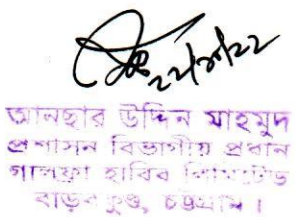 ২২/৮/২২
আনছার উদ্দিন মাহমুদ
প্রশাসন বিভাগীয় প্রধান
গালফ্রা হাবিব লিমিটেড
বাড়বকুন্ড, চট্টগ্রাম।